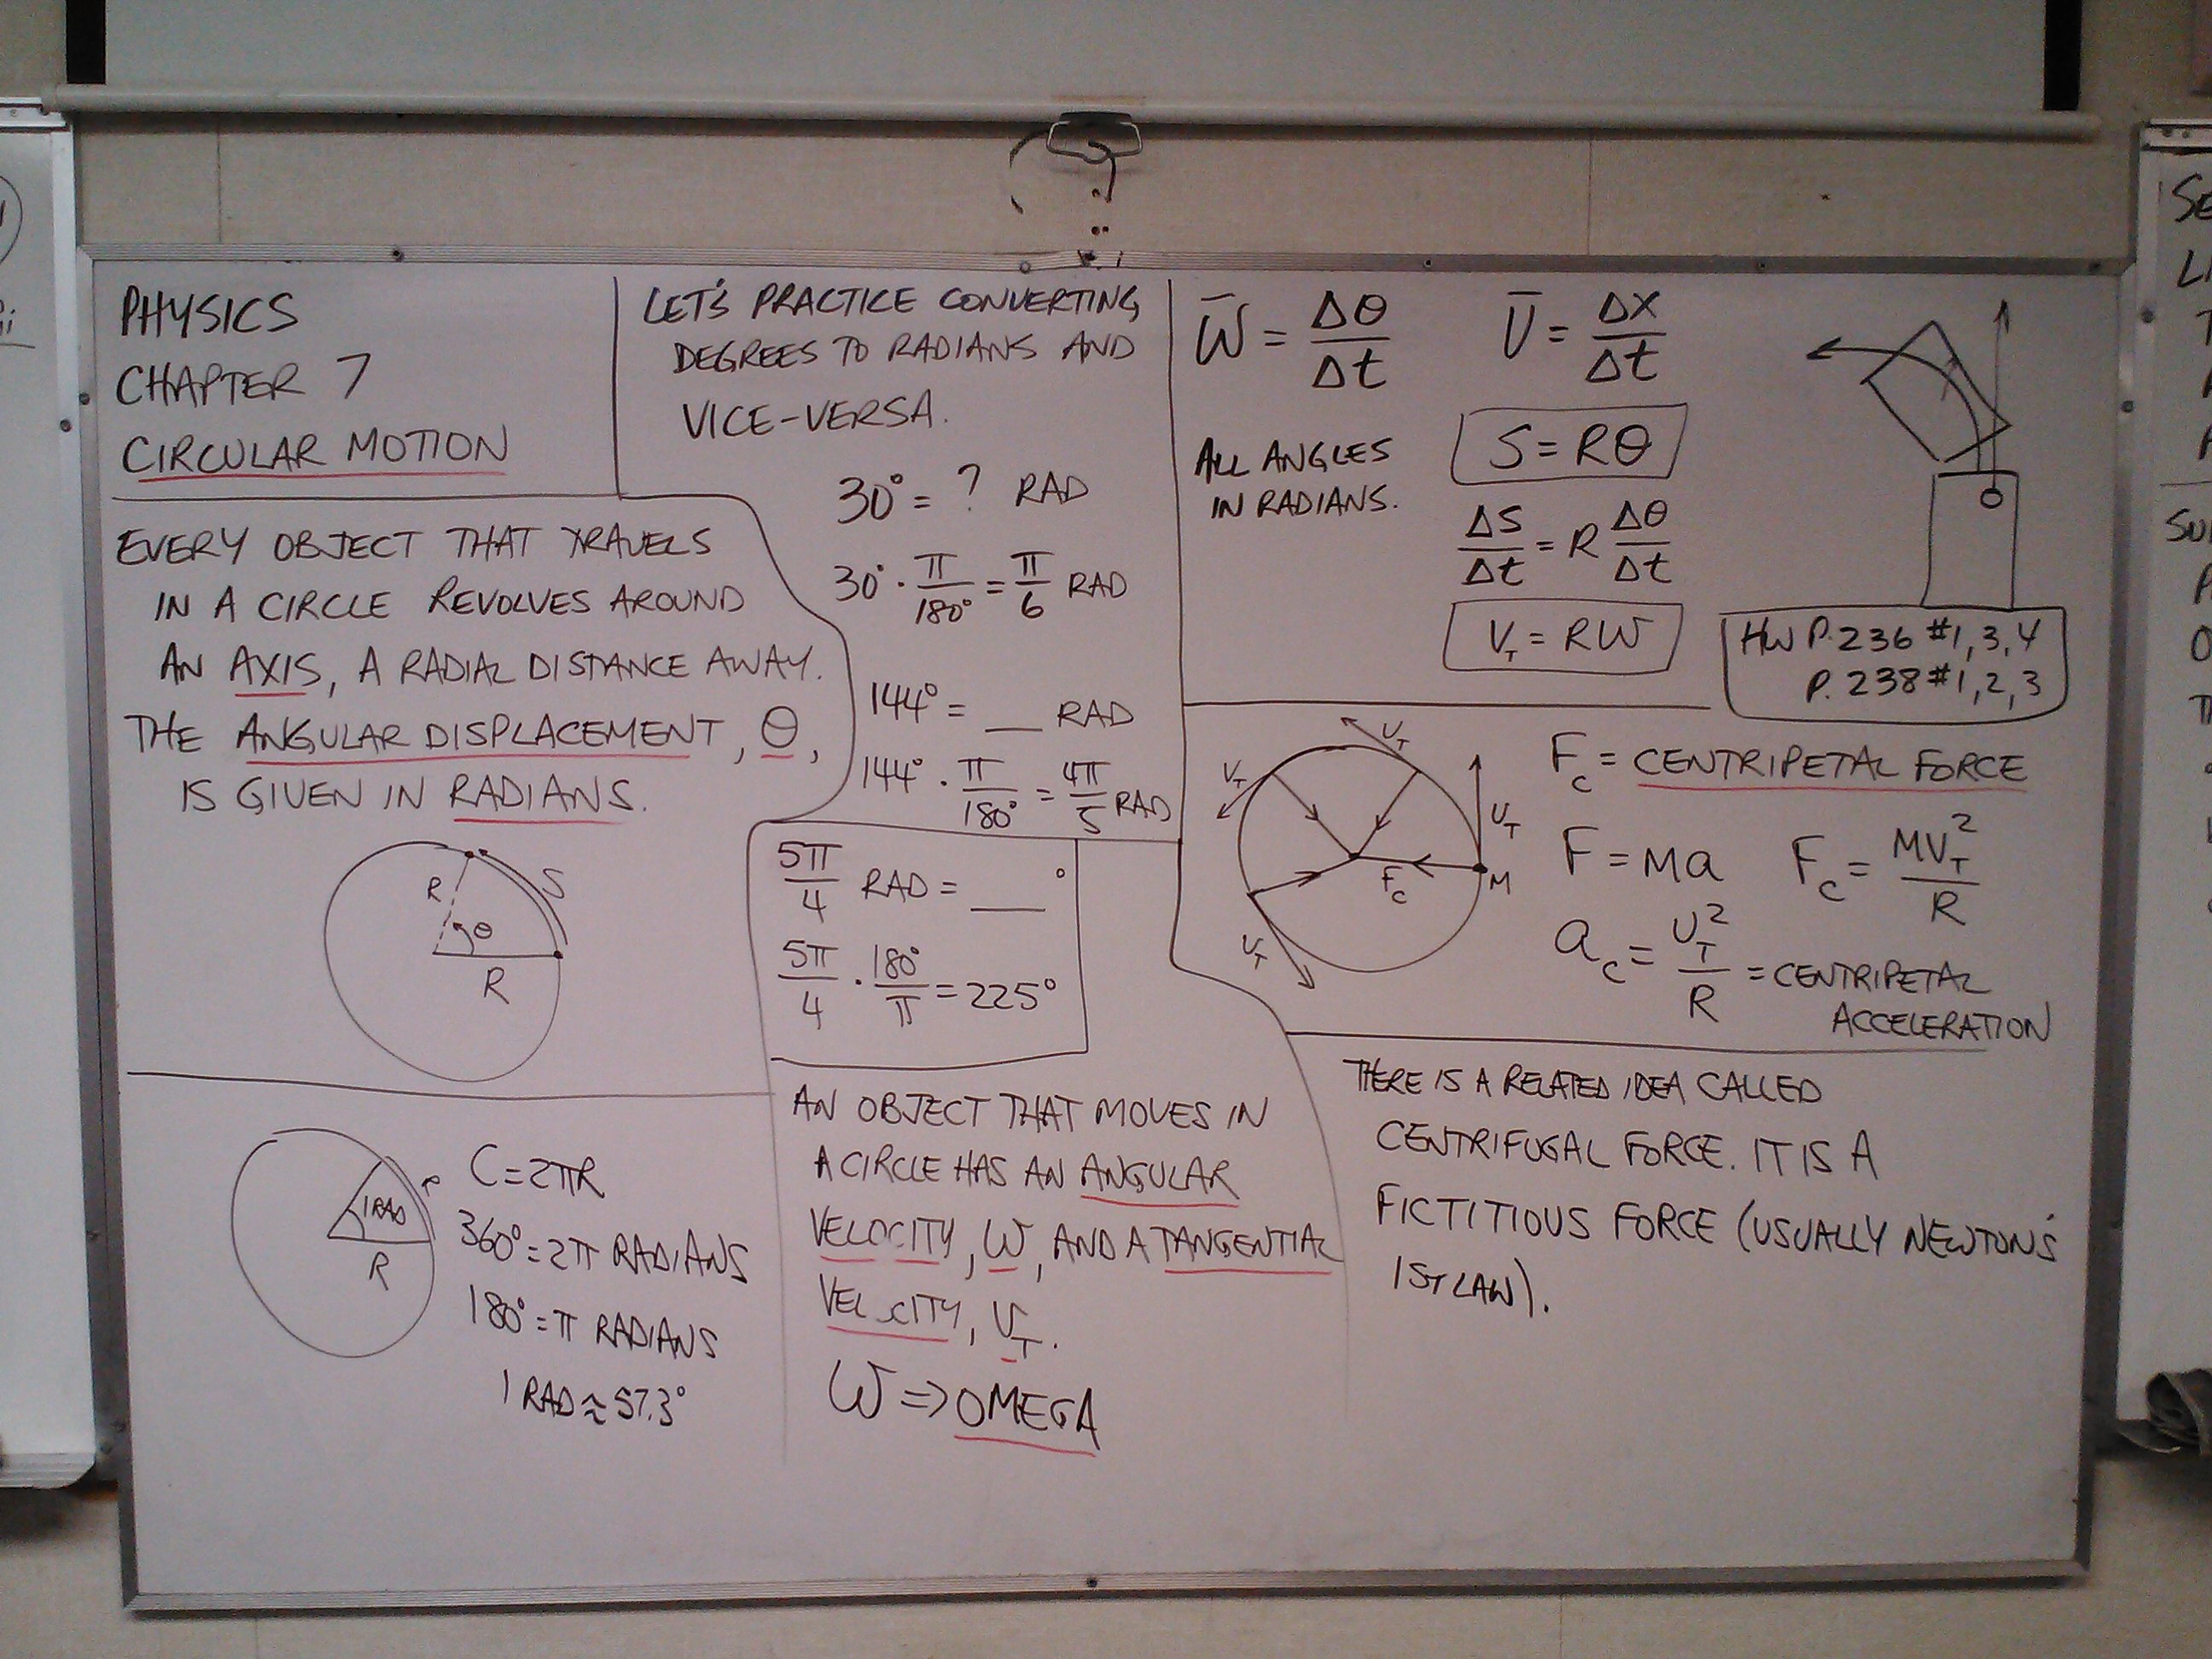 PHYSICS
CHAPTER 7
CIRCULAR MOTION
EVERY OBJECT THAT TRAVELS
IN A CIRCLE REVOLVES AROUND
AN AXIS, A RADIAL DISTANCE AWAY.
THE ANGULAR DISPLACEMENT, θ,
IS GIVEN IN RADIANS.
R
S
θ
R
1 RAD
R
C=2πR
360°=2π RADIANS
180°=π RADIANS
1 RAD≈57.3°
LET'S PRACTICE CONVERTING
DEGREES TO RADIANS AND
VICE-VERSA.
30°= ? RAD
30° · π/180° = π/6 RAD
144° = __ RAD
144° · π/180° = 4π/5 RAD
5π/4 RAD = ___ °
5π/4 · 180°/π = 225°
AN OBJECT THAT MOVES IN
A CIRCLE HAS AN ANGULAR
VELOCITY, ω, AND A TANGENTIAL
VELOCITY, V_T.
ω => OMEGA
ω̄ = Δθ/Δt
V̄ = Δx/Δt
ALL ANGLES
IN RADIANS.
S = Rθ
ΔS/Δt = R Δθ/Δt
V_T = Rω
HW P. 236 #1, 3, 4
P. 238 #1, 2, 3
V_T
V_T
V_T
F_c
M
V_T
F_c = CENTRIPETAL FORCE
F = Ma
F_c = MV_T²/R
a_c = V_T²/R = CENTRIPETAL
ACCELERATION
THERE IS A RELATED IDEA CALLED
CENTRIFUGAL FORCE. IT IS A
FICTITIOUS FORCE (USUALLY NEWTON'S
1ST LAW).